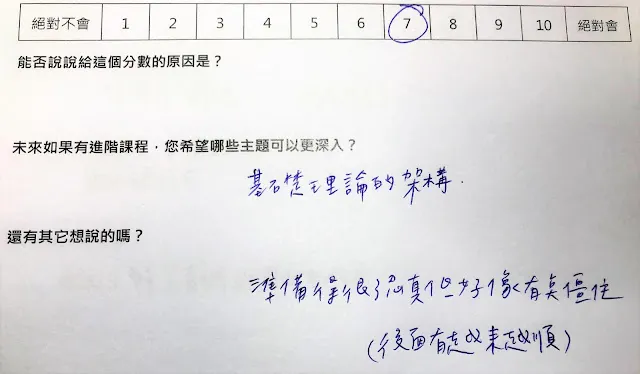 絕對不會 1 2 3 4 5 6 7 8 9 10 絕對會
能否說說給這個分數的原因是？
未來如果有進階課程，您希望哪些主題可以更深入？
基礎理論的架構.
還有其它想說的嗎？
準備得很認真但好像有點僵住
(後面有越來越順)